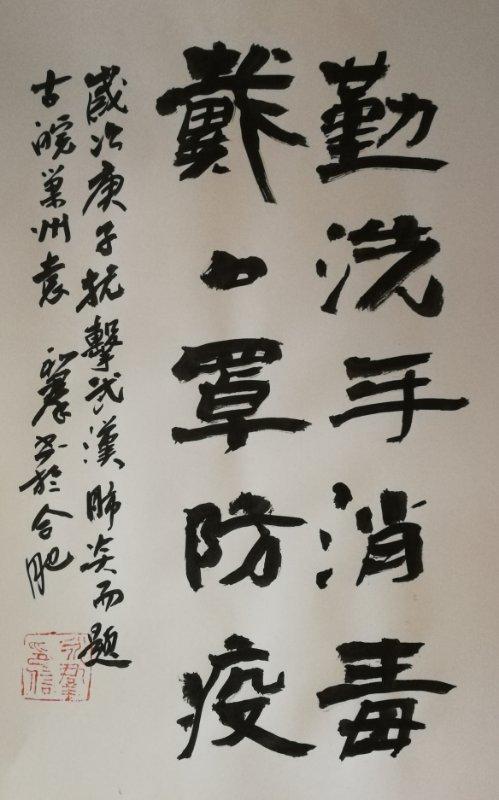 勤洗手消毒
戴口罩防疫
歲次庚子抗擊武漢肺炎而題
古皖巢州袁羣書於合肥